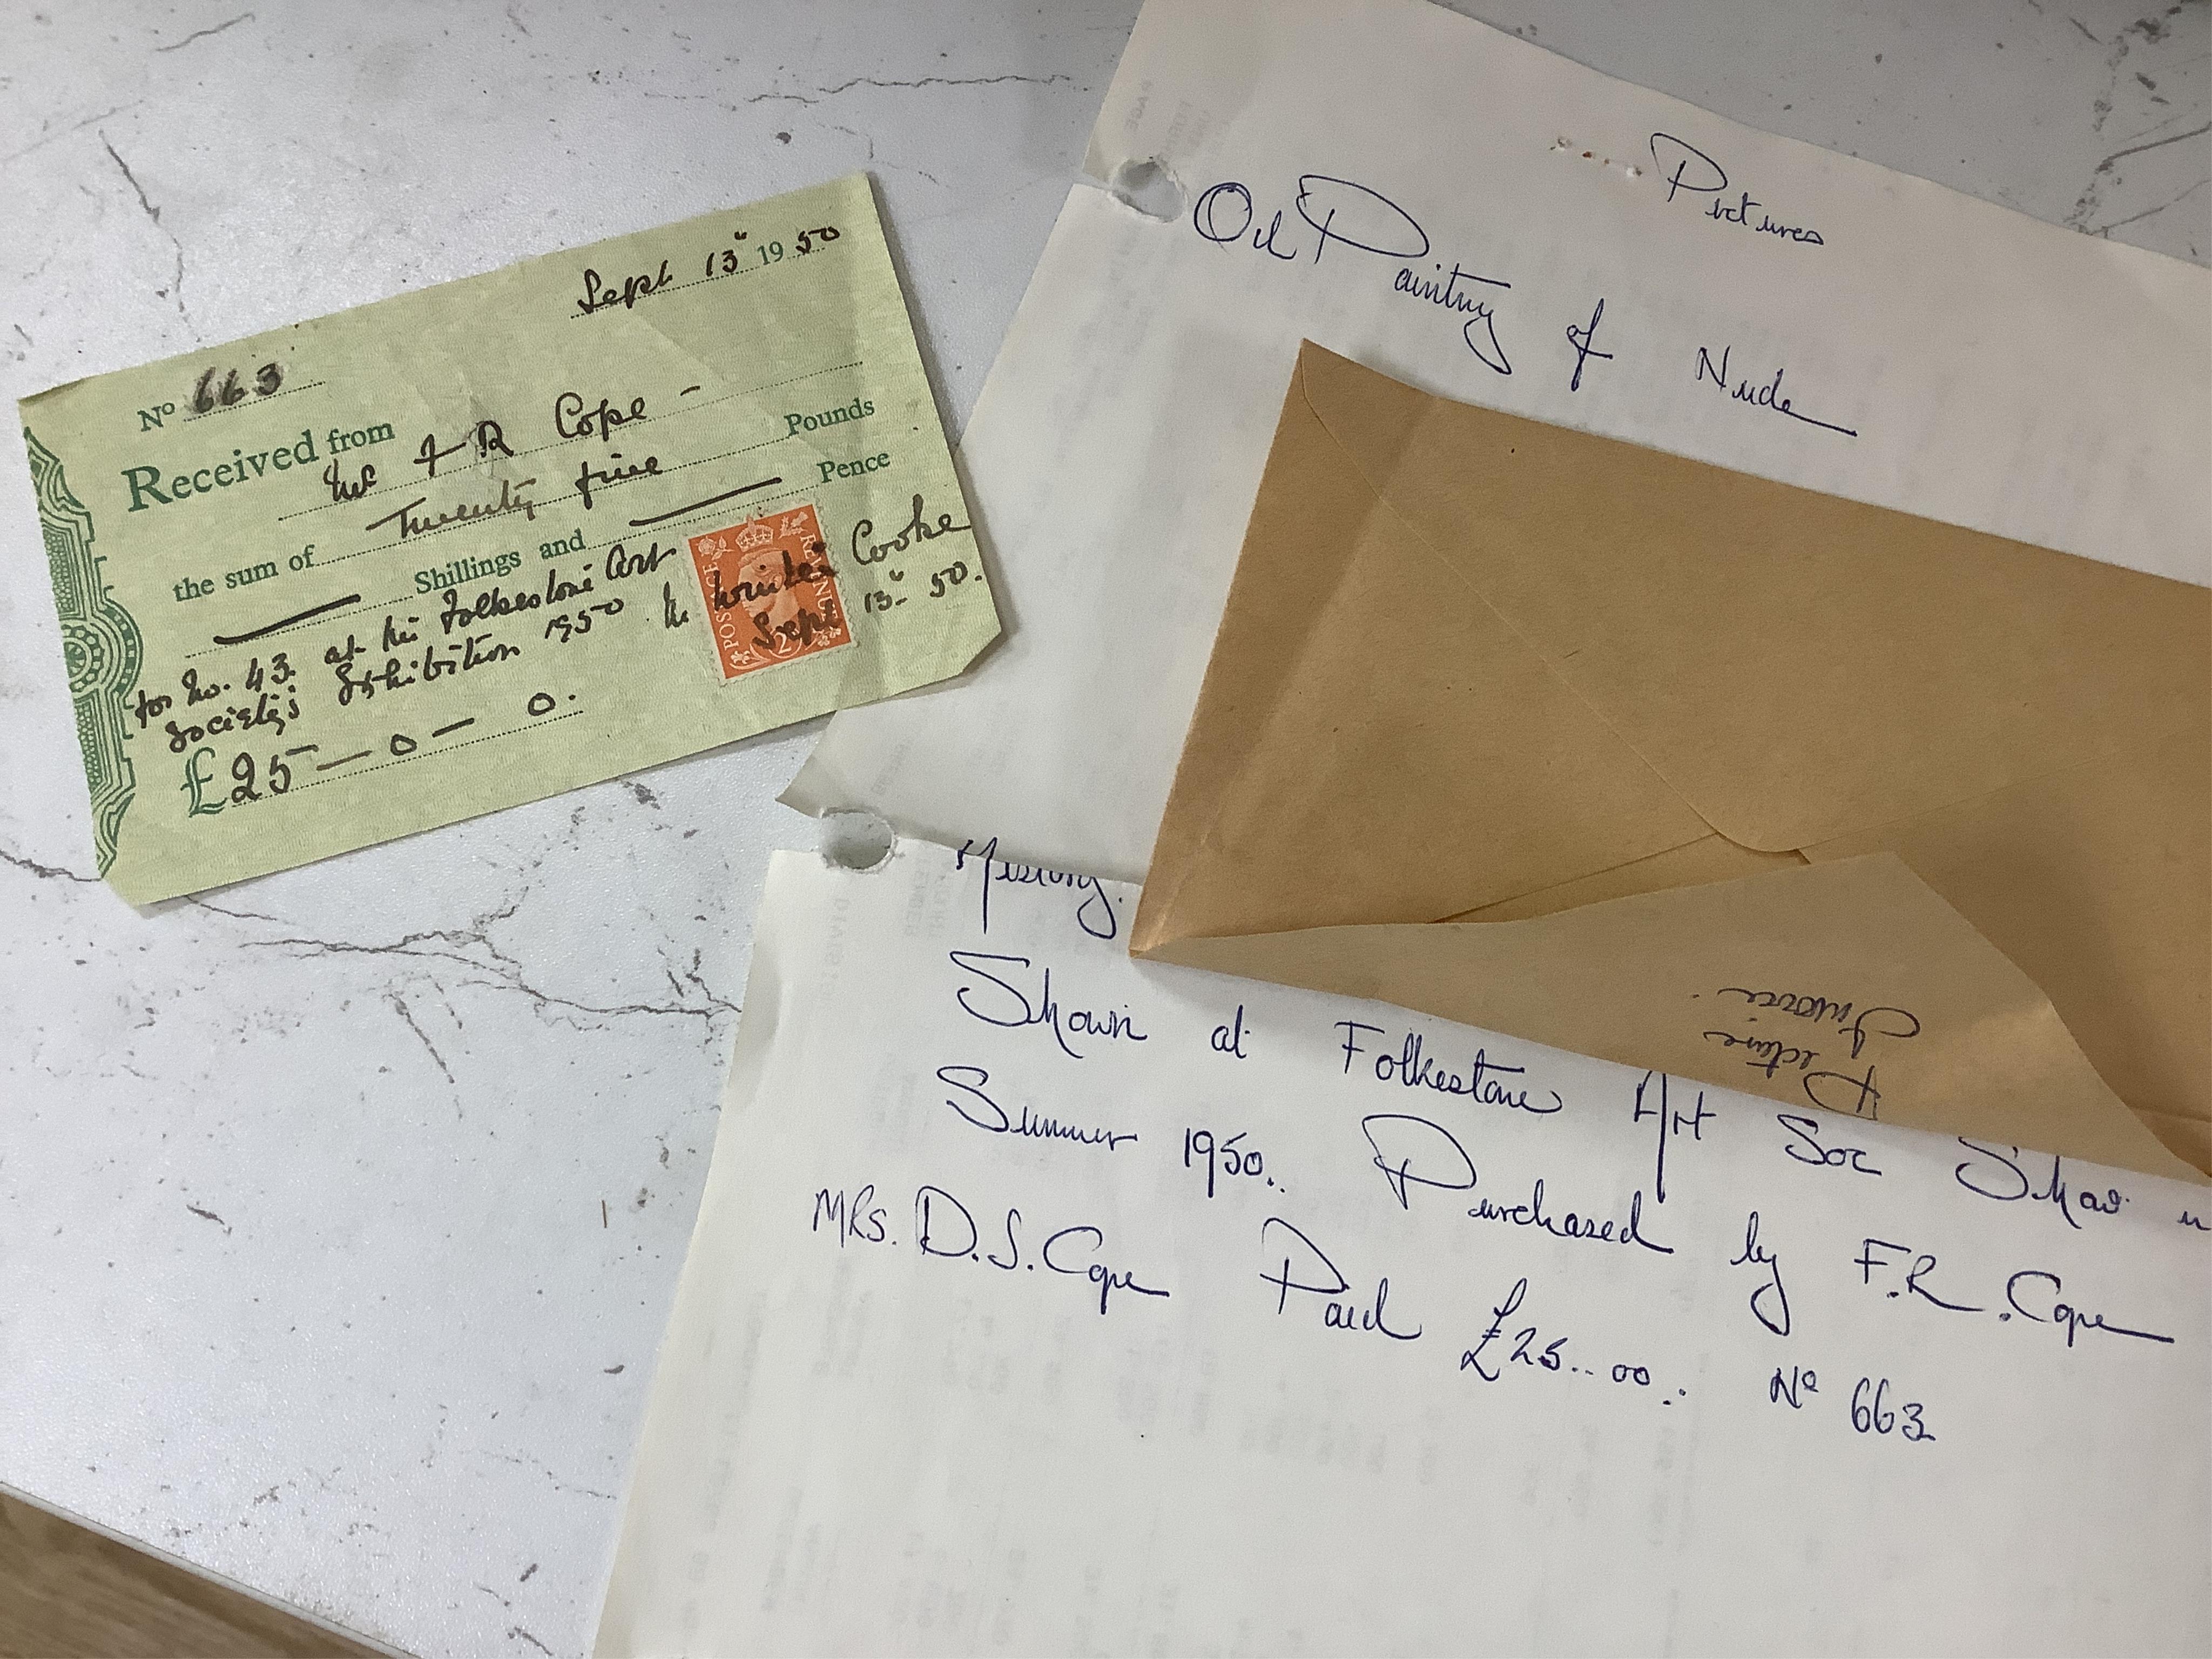 Sept. 13" 1950
No 663
Received from
Mr F R Cope -
the sum of Twenty five Pounds
Shillings and Pence
for No. 43. at the Folkestone Art
Society's Exhibition 1950
£25 - 0 - 0.
POSTAGE REVENUE
Cooke
Sept 13" 50.
Pictures
Oil Painting of Nude
History.
Shown at Folkestone Art Soc Show
Summer 1950.. Purchased by F.R. Cope
MRS. D.S. Cope Paid £25..00.. No 663
Picture
Invoice.